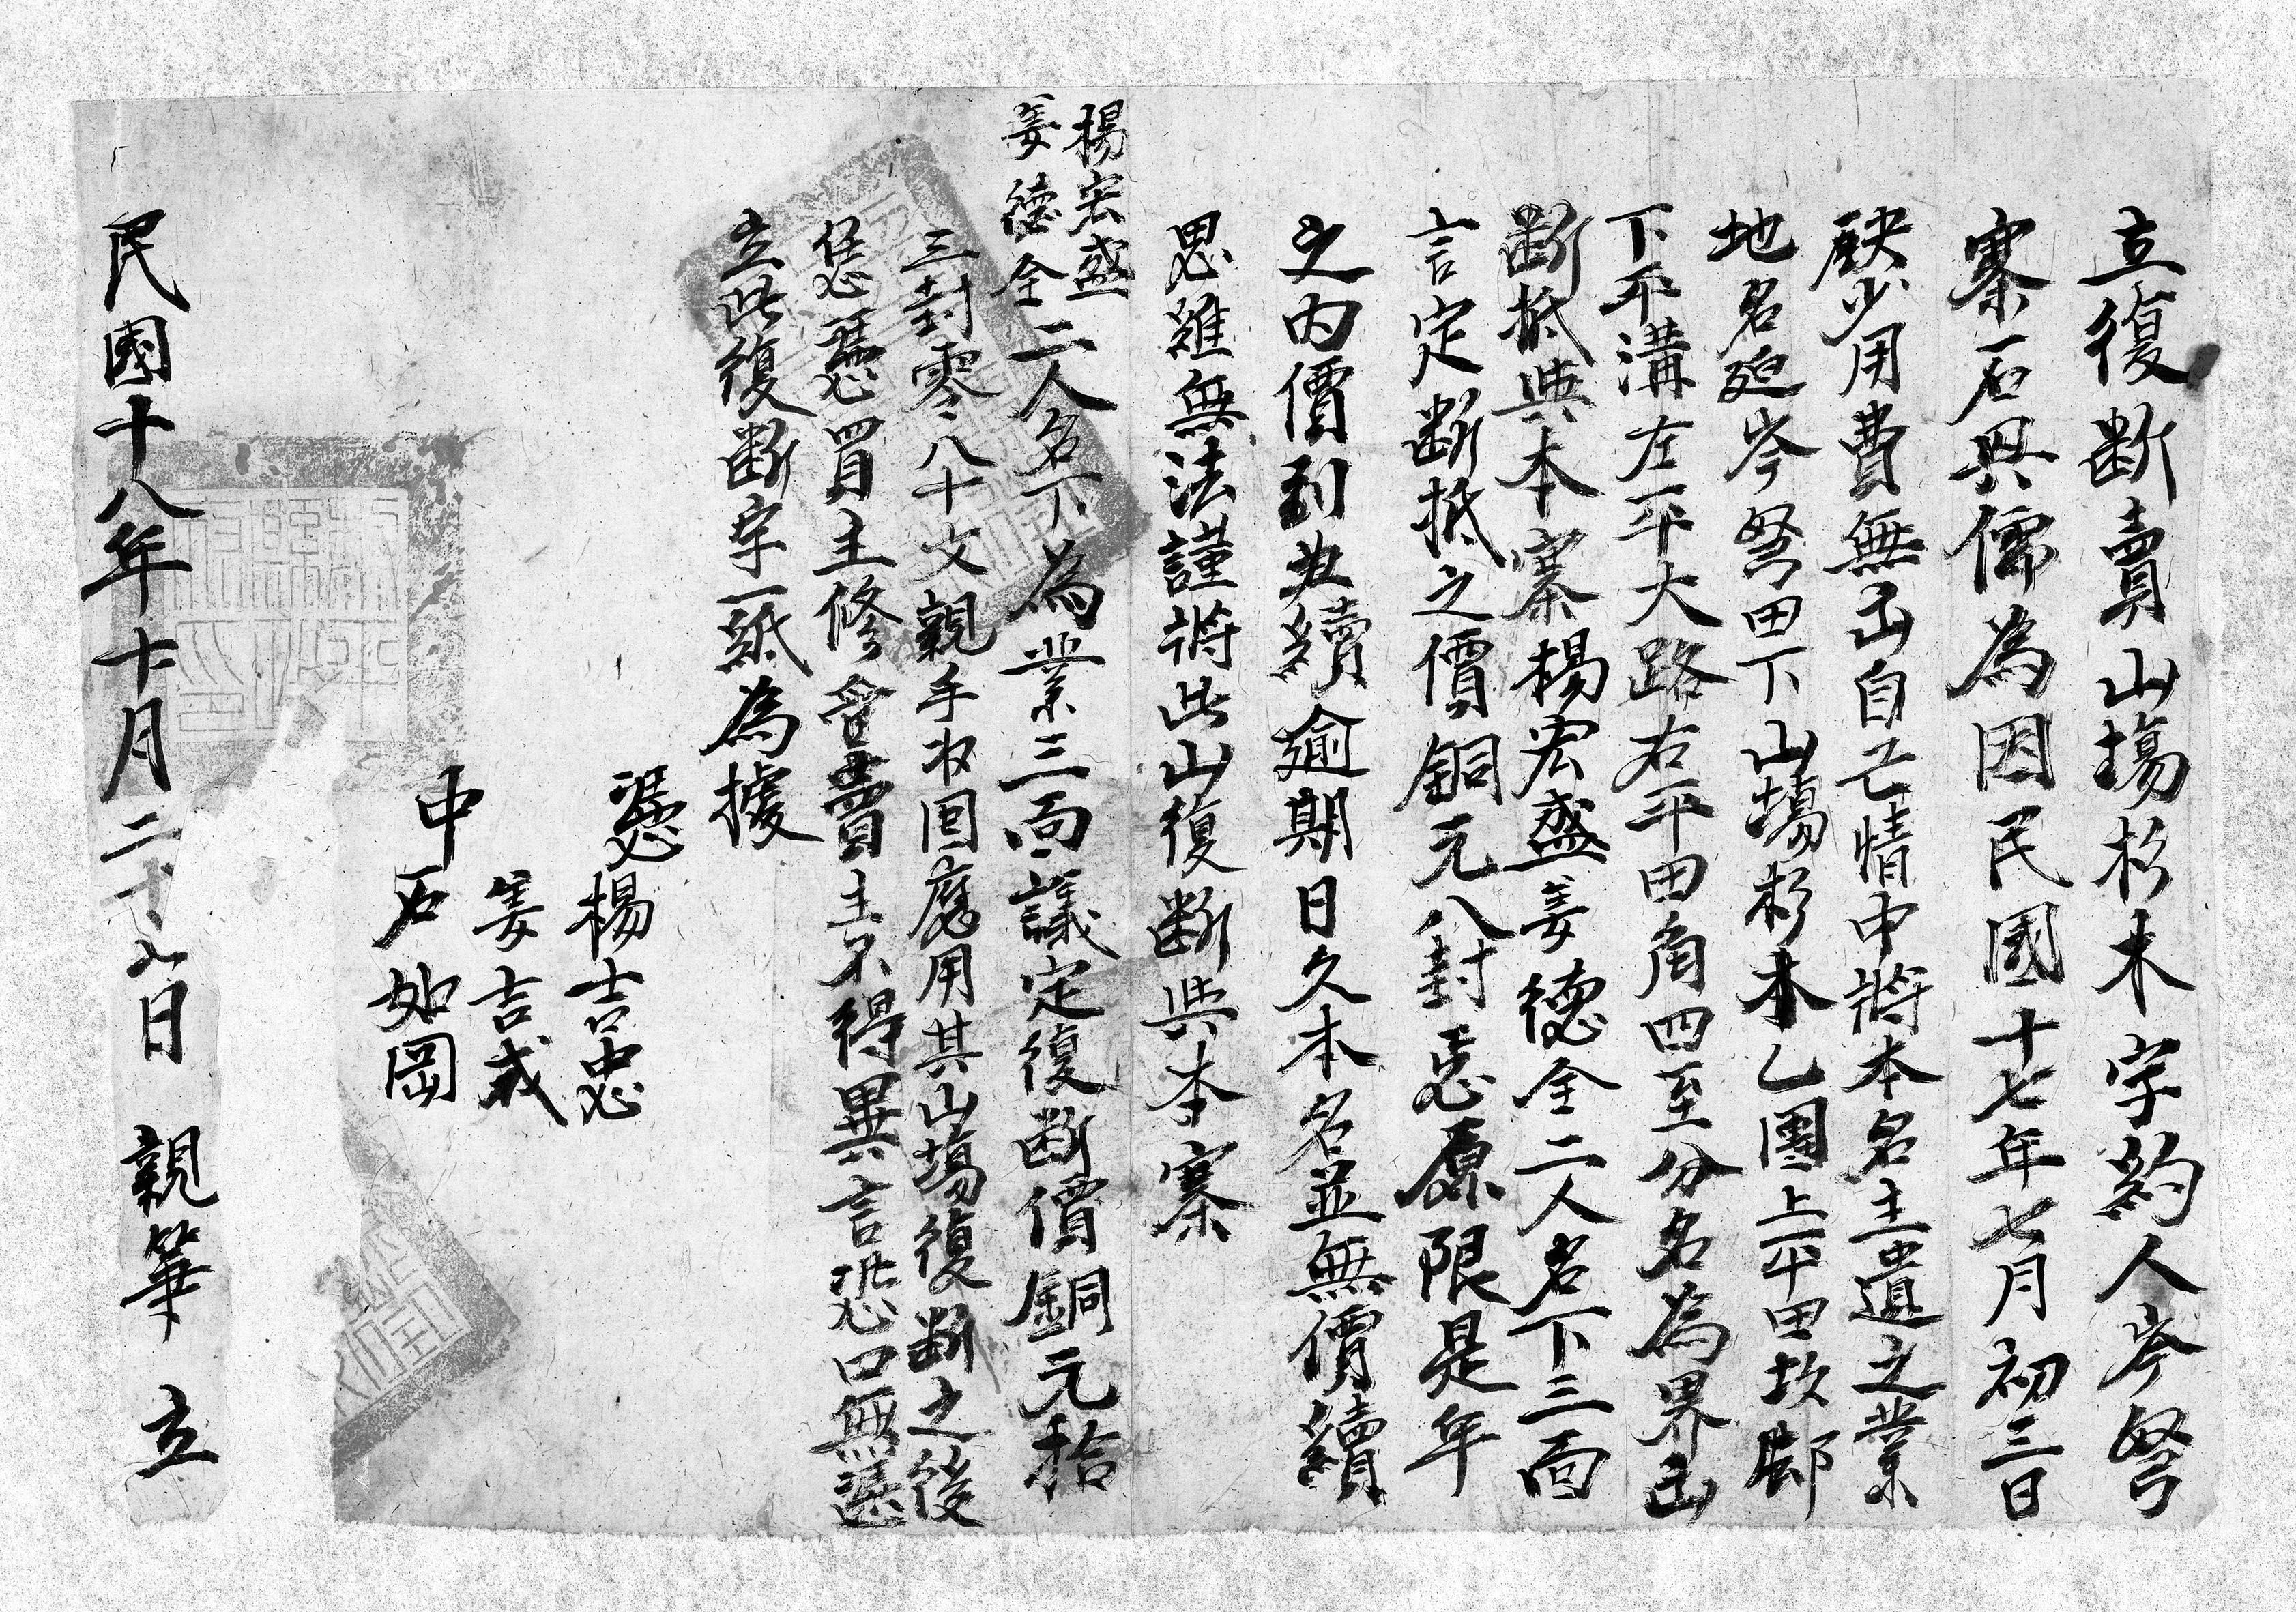 立復斷賣山塲杉木字約人岑弩
寨石興儒為因民國十七年七月初三日
缺少用費無出自己情中將本名主遺之業
地名廻岑弩田下山塲杉木乙團上平田坎腳
下平溝左平大路右平田角四至分名為界出
斷抵與本寨楊宏盛姜德全二人名下三面
言定斷抵之價銅元八封忘原限是年
之內價到典續逾期日久本名並無價續
思維無法謹將此山復斷與本寨
楊宏盛
姜德全二人名下為業三面議定復斷價銅元拾
三封零八十文親手收囬應用其山塲復斷之後
恁憑買主修畬賣主不得異言恐口無憑
立此復斷字一紙為據
憑楊士忠
姜吉成
中石如岡
民國十八年十月二十八日 親筆 立